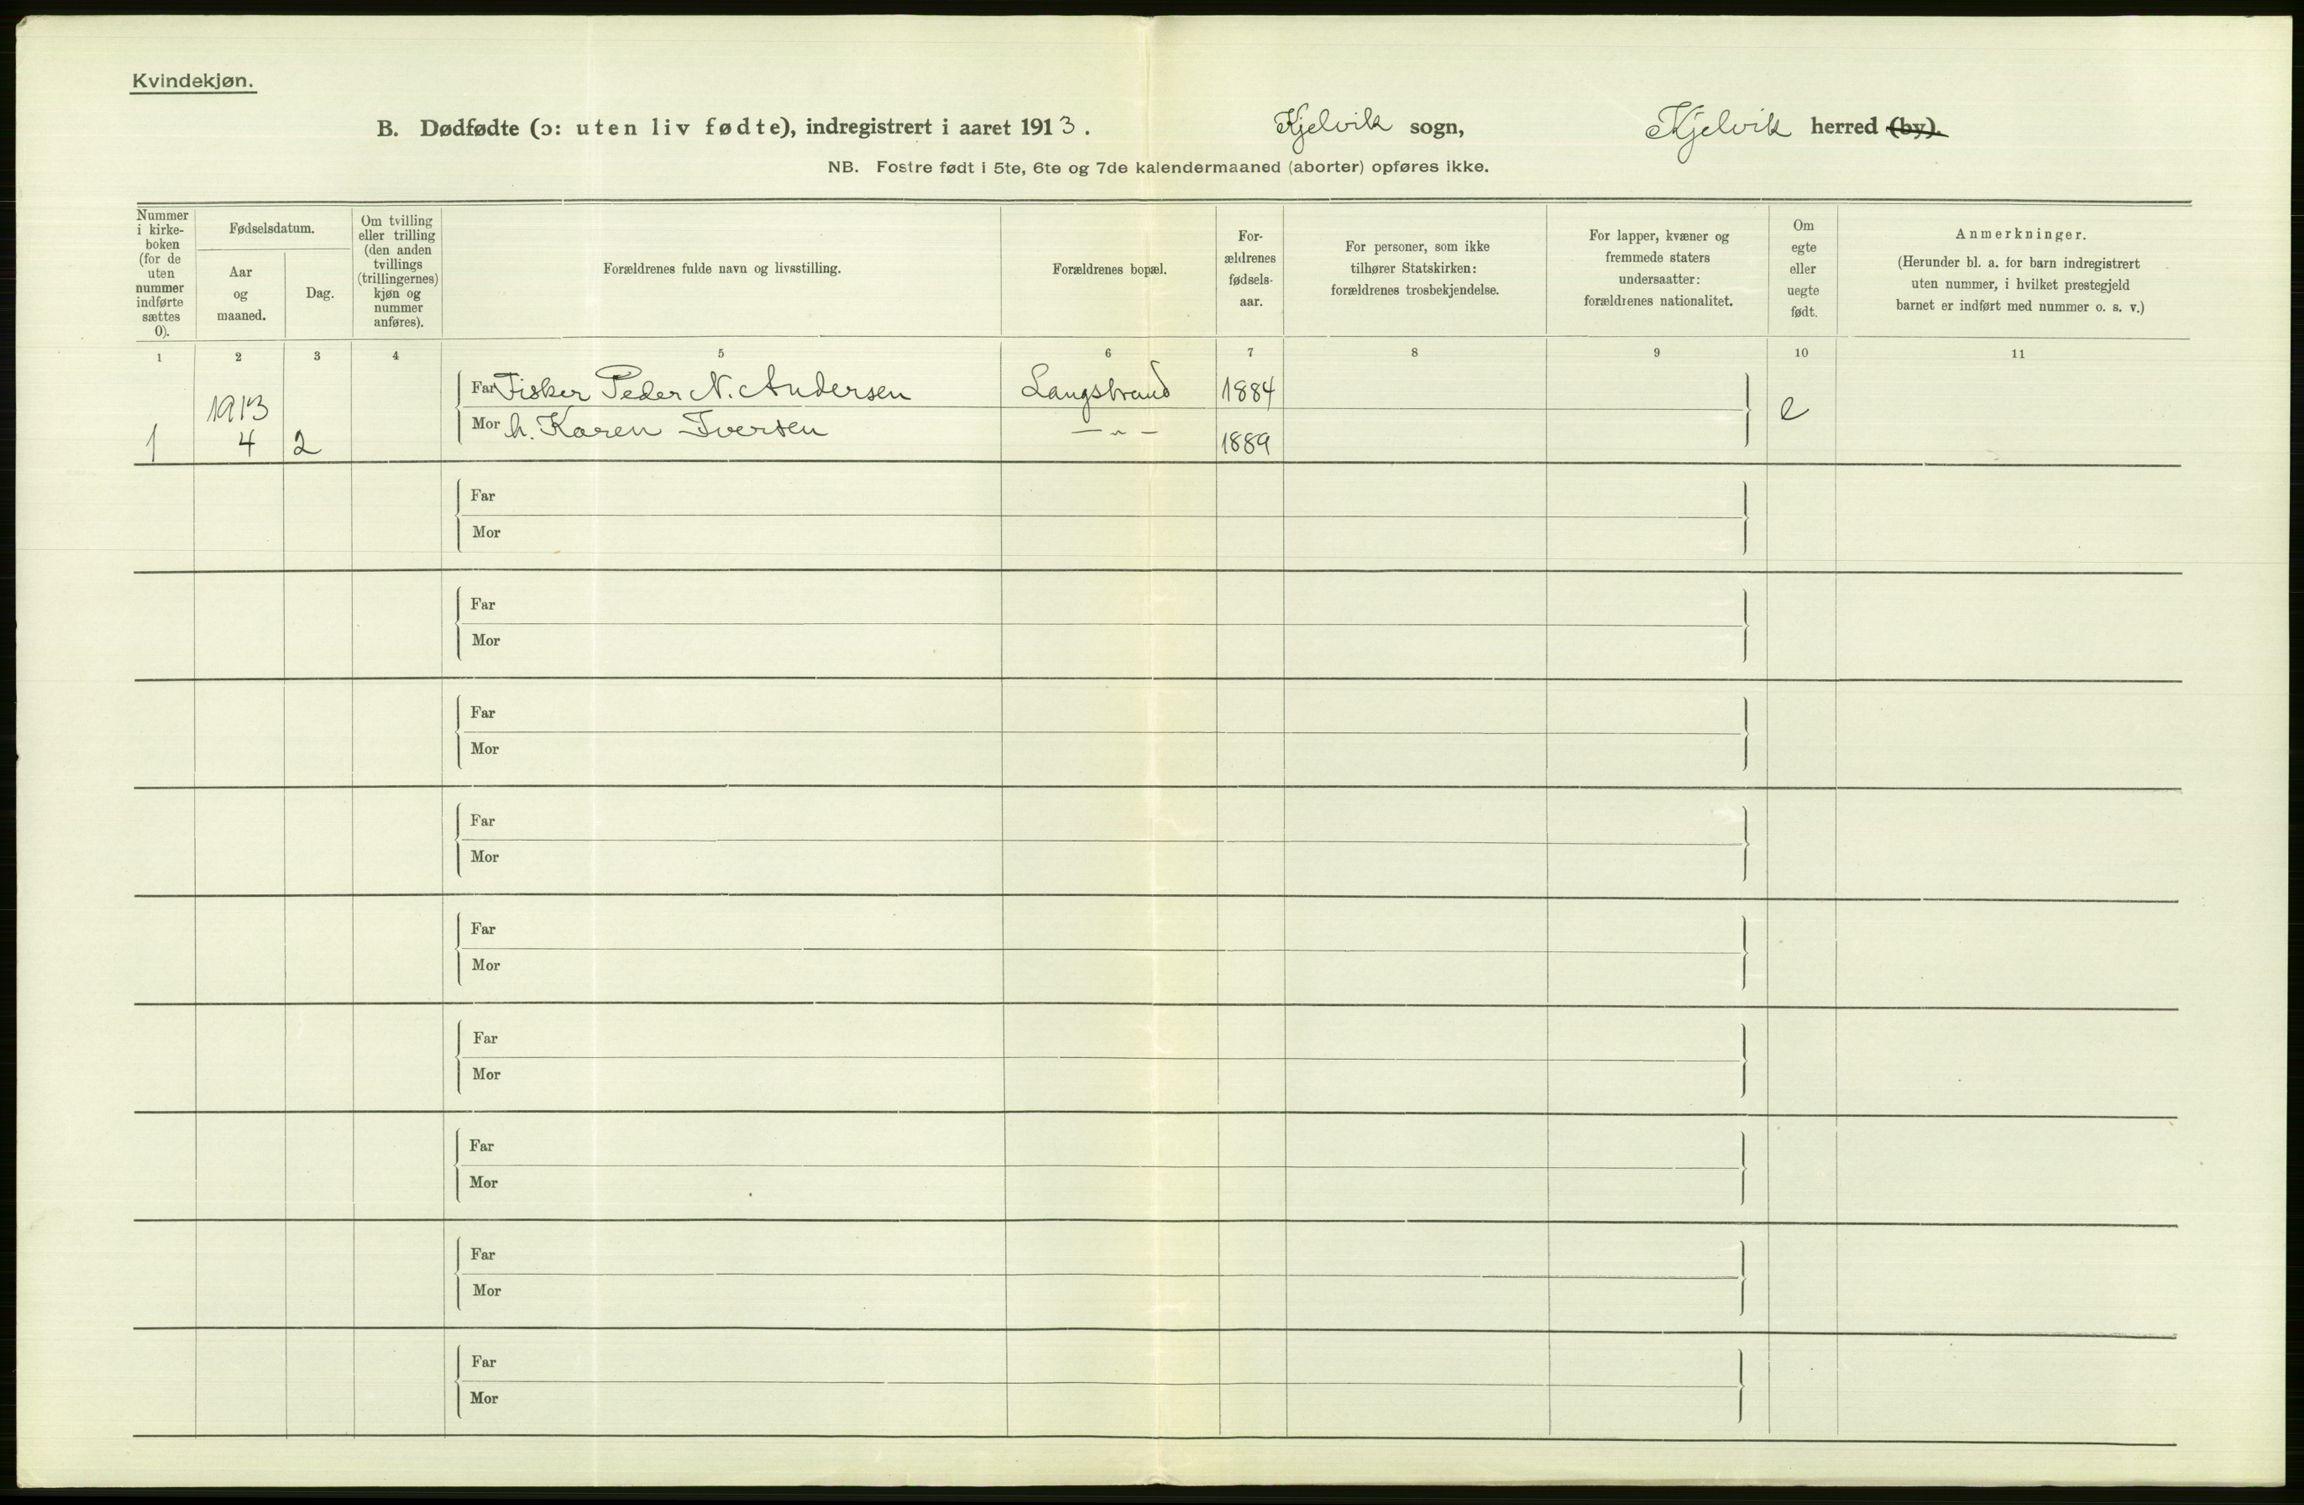 Kvindekjøn.
B. Dødfødte (ɔ: uten liv fødte), indregistrert i aaret 1913. Kjelvik sogn, Kjelvik herred (by).
NB. Fostre født i 5te, 6te og 7de kalendermaaned (aborter) opføres ikke.
Nummer
i kirke-
boken
(for de
uten
nummer
indførte
sættes
0).
Fødselsdatum.
Aar
og
maaned.
Dag.
Om tvilling
eller trilling
(den anden
tvillings
(trillingernes)
kjøn og
nummer
anføres).
Forældrenes fulde navn og livsstilling.
Forældrenes bopæl.
For-
ældrenes
fødsels-
aar.
For personer, som ikke
tilhører Statskirken:
forældrenes trosbekjendelse.
For lapper, kvæner og
fremmede staters
undersaatter:
forældrenes nationalitet.
Om
egte
eller
uegte
født.
Anmerkninger.
(Herunder bl. a. for barn indregistrert
uten nummer, i hvilket prestegjeld
barnet er indført med nummer o. s. v.)
1 2 3 4 5 6 7 8 9 10 11
1913
Far Fisker Peder N. Andersen Langstrand 1884
e
Mor h. Karen Iversen — " — 1889
1 4 2
Far
Mor
Far
Mor
Far
Mor
Far
Mor
Far
Mor
Far
Mor
Far
Mor
Far
Mor
Far
Mor